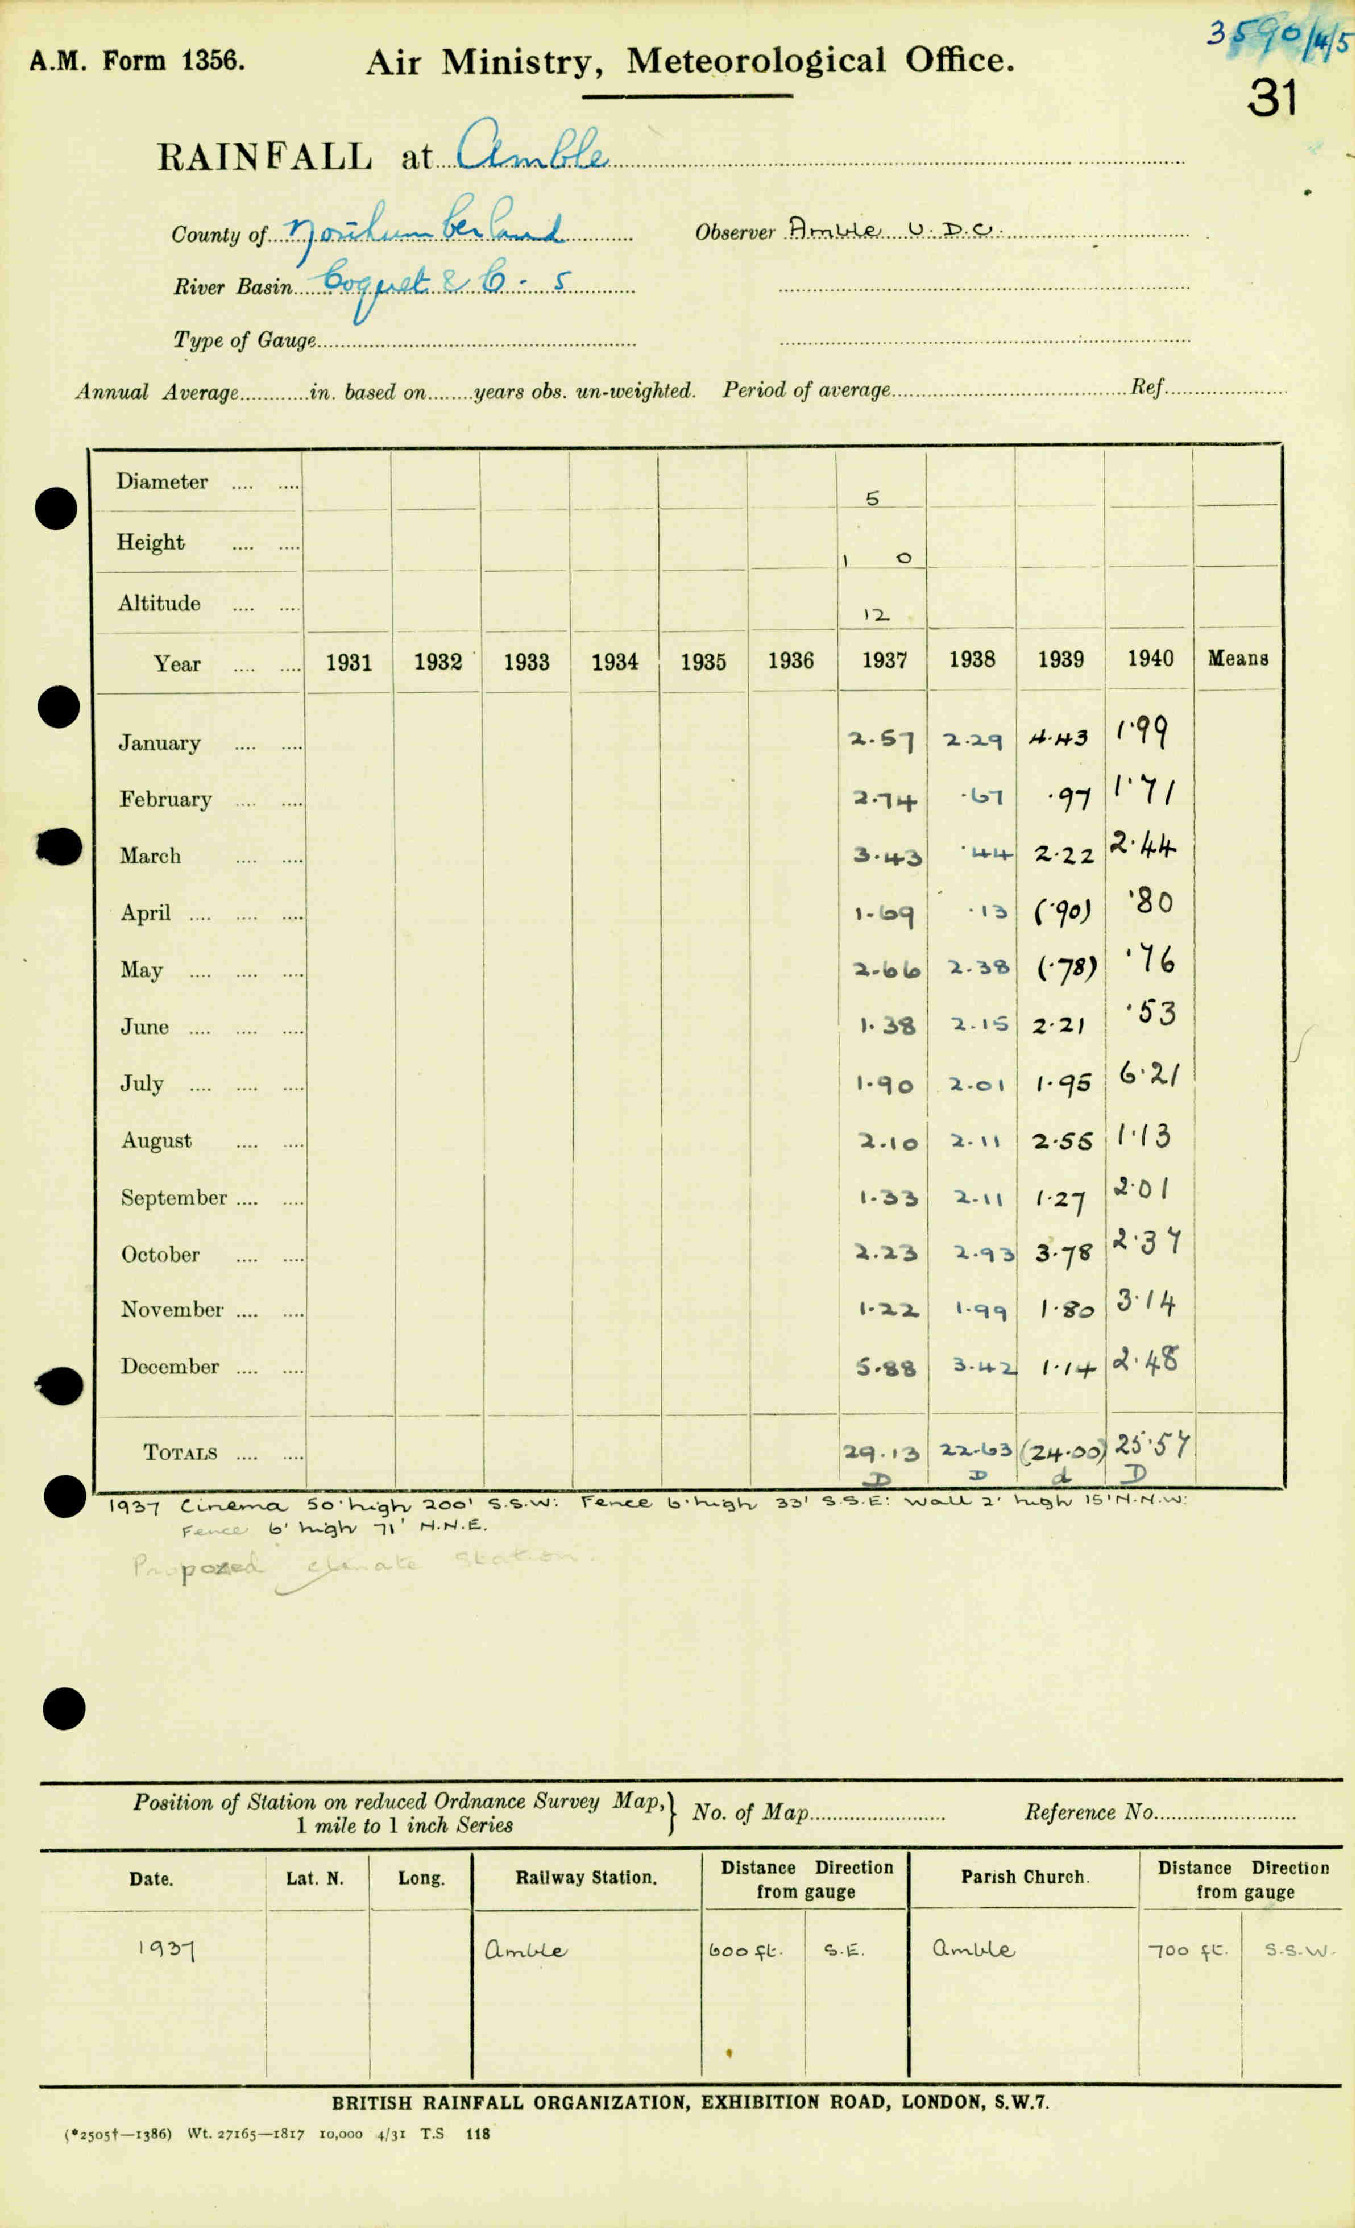 3590/4/5
A.M. Form 1356. Air Ministry, Meteorological Office.
31
RAINFALL at Amble
County of Northumberland Observer Amble U.D.C.
River Basin Coquet & C. 5
Type of Gauge
Annual Average in. based on years obs. un-weighted. Period of average Ref.
Diameter 5
Height 1 0
Altitude 12
Year 1931 1932 1933 1934 1935 1936 1937 1938 1939 1940 Means
January 2.57 2.29 4.43 1.99
February 2.74 .67 .97 1.71
March 3.43 .44 2.22 2.44
April 1.69 .13 (.90) .80
May 2.66 2.38 (.78) .76
June 1.38 2.15 2.21 .53
July 1.90 2.01 1.95 6.21
August 2.10 2.11 2.55 1.13
September 1.33 2.11 1.27 2.01
October 2.23 2.93 3.78 2.37
November 1.22 1.99 1.80 3.14
December 5.88 3.42 1.14 2.48
TOTALS 29.13 22.63 (24.00) 25.57
D D d D
1937 Cinema 50' high 200' S.S.W: Fence 6' high 33' S.S.E: Wall 2' high 15' N.N.W:
Fence 6' high 71' N.N.E.
Proposed climate station.
Position of Station on reduced Ordnance Survey Map, 1 mile to 1 inch Series } No. of Map Reference No.
Date. Lat. N. Long. Railway Station. Distance Direction from gauge Parish Church. Distance Direction from gauge
1937 Amble 600 ft. S.E. Amble 700 ft. S.S.W.
BRITISH RAINFALL ORGANIZATION, EXHIBITION ROAD, LONDON, S.W.7.
(*2505†—1386) Wt. 27165—1817 10,000 4/31 T.S 118